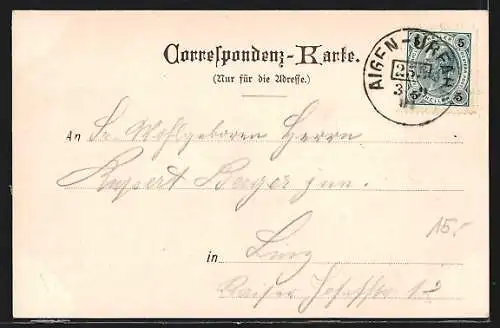 Correspondenz-Karte.
(Nur für die Adresse.)
AIGEN-URFAHR
5 5
5 5
An Sr. Wohlgeboren Herrn
Rupert Berger jun.
in Linz
Kaiser Josefstr 12
15.-